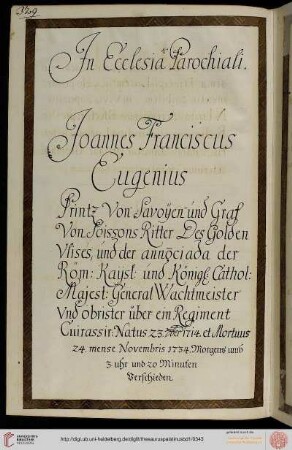 329
In Ecclesia Parochiali.
Joannes Franciscus
Eugenius
Printz Von Savoÿen und Graf
Von Soissons Ritter Des Golden
Vlises, und der annonciada der
Röm: Kaÿsl: und Königl: Cathol:
Majest: General Wachtmeister
Vnd obrister über ein Regiment
Cuirassir. Natus 23. 7ber 1714. et Mortuus
24. mense Novembris 1734. Morgens umb
3 uhr und 20 Minuten
Verschieden.
http://digi.ub.uni-heidelberg.de/diglit/